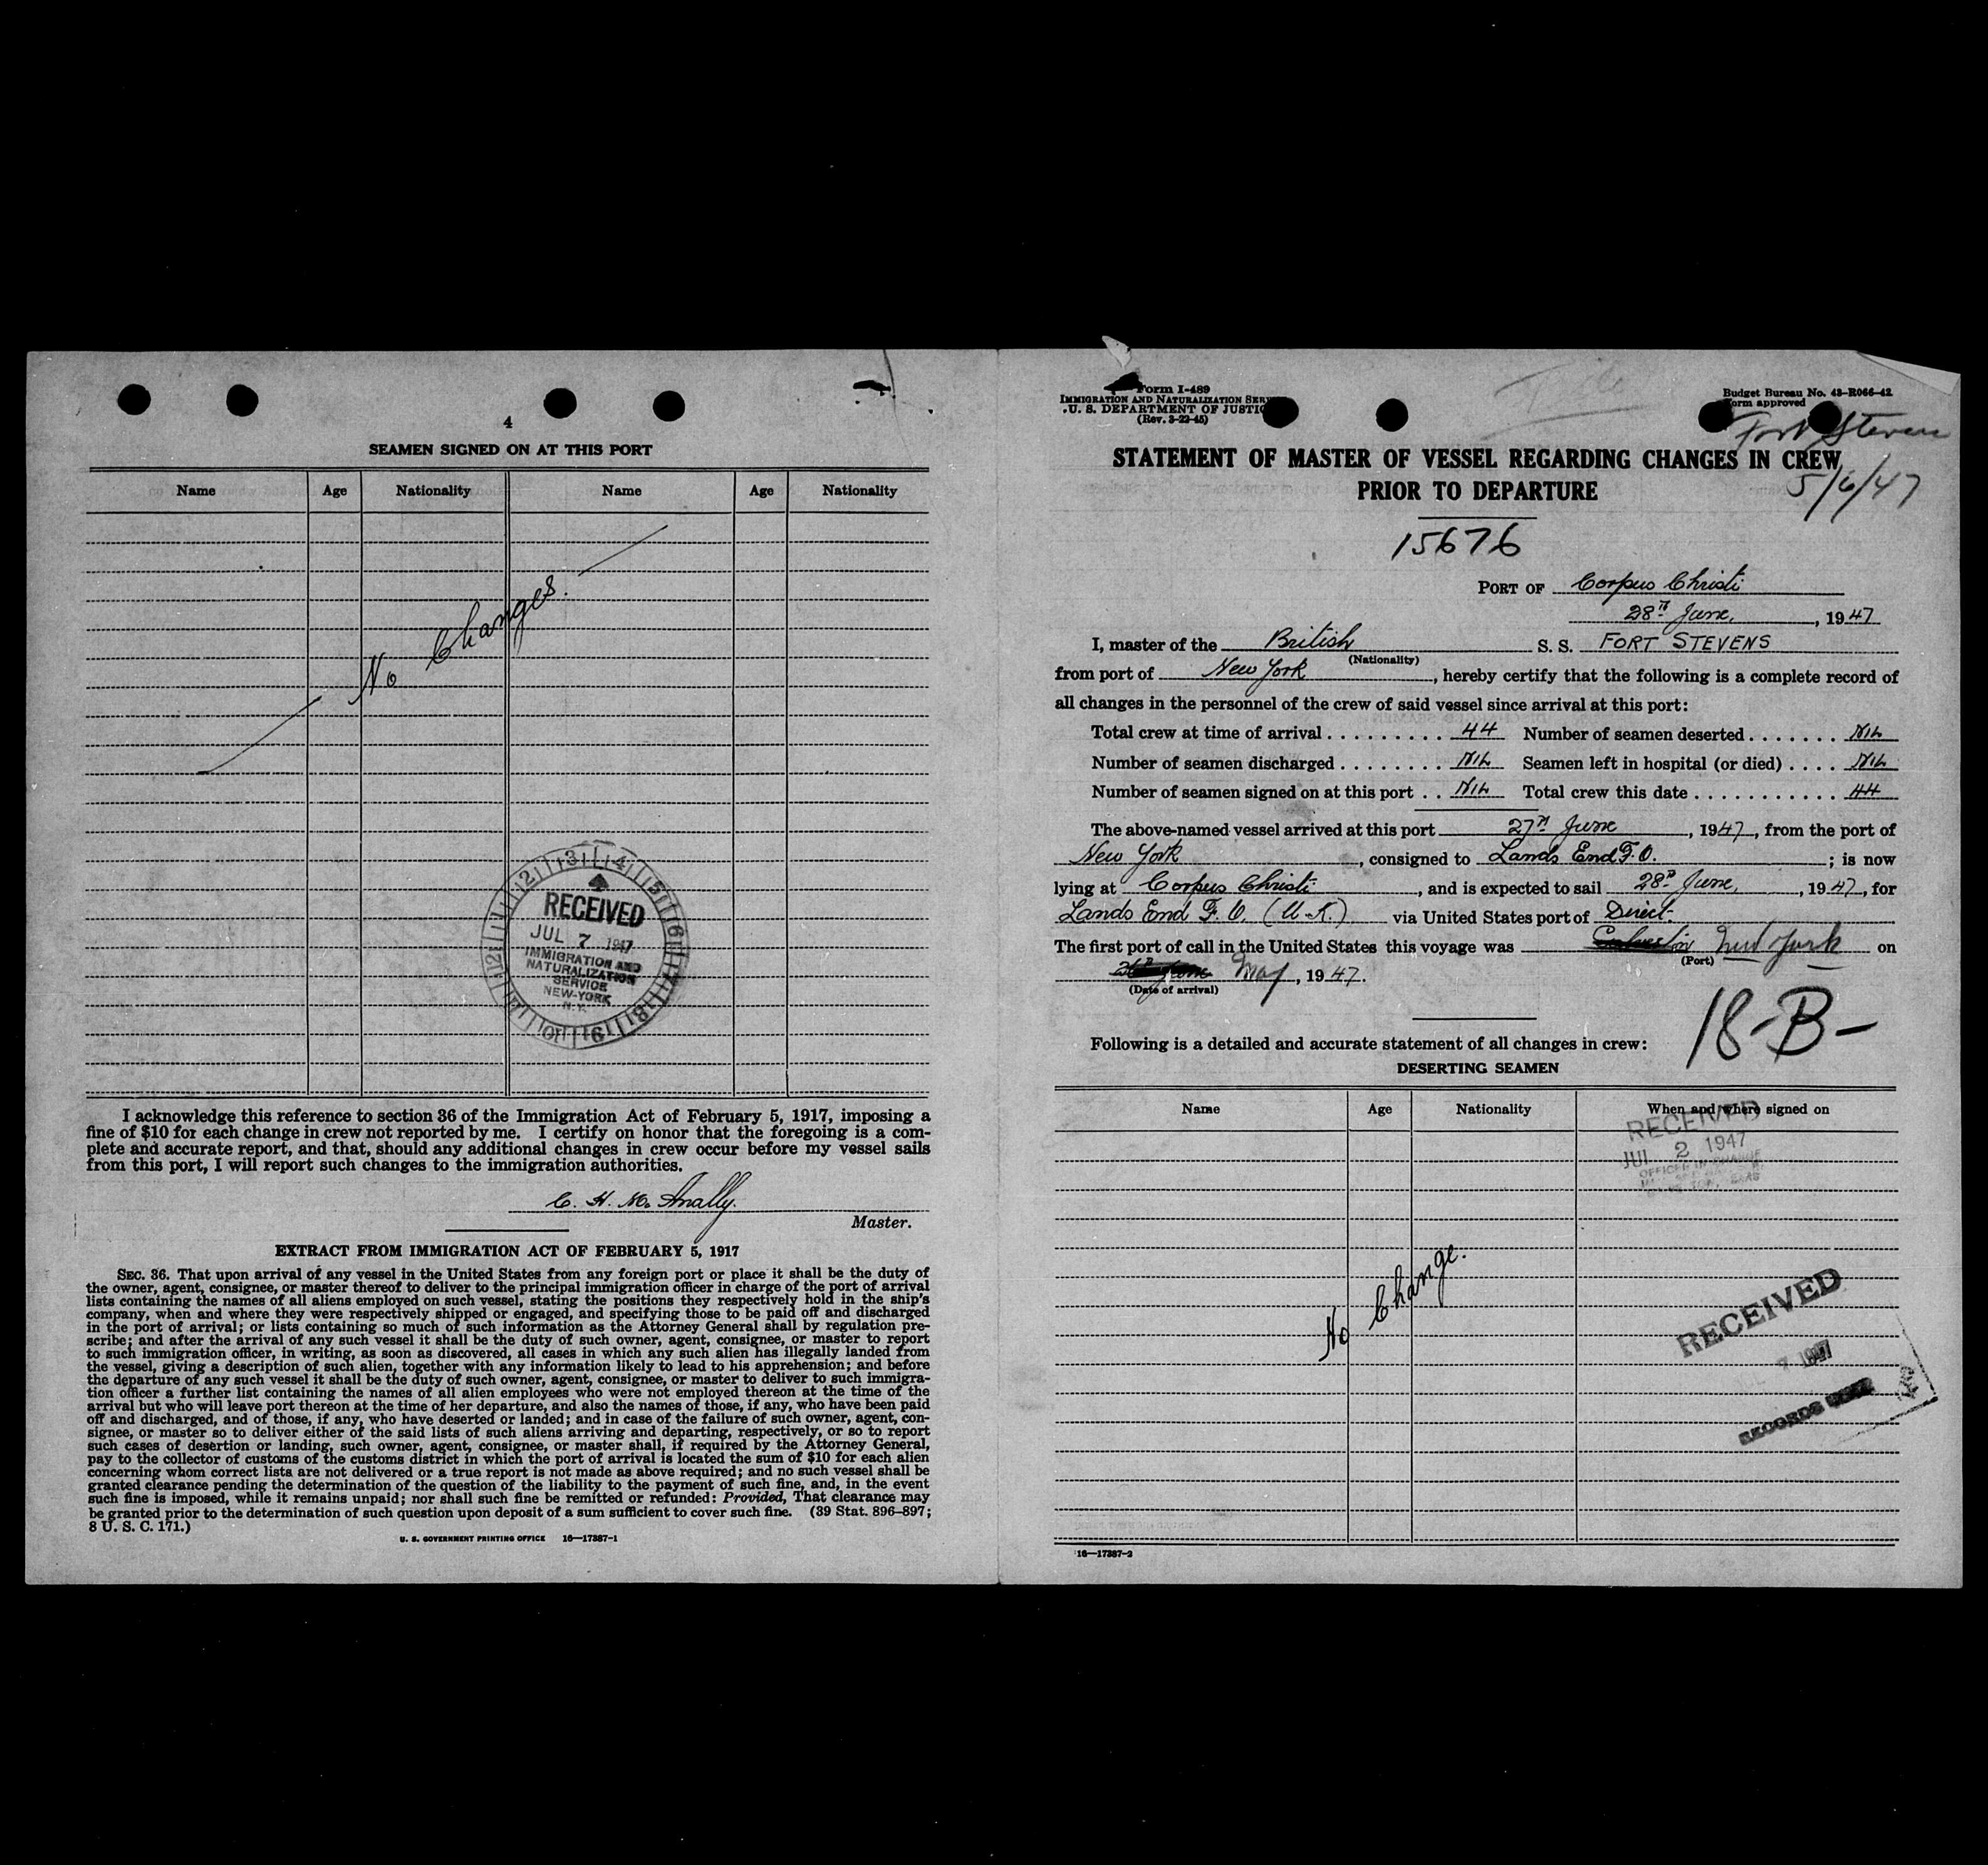 4
SEAMEN SIGNED ON AT THIS PORT
Name Age Nationality Name Age Nationality
No Changes.
RECEIVED
JUL 7 1947
IMMIGRATION AND
NATURALIZATION
SERVICE
NEW-YORK
N.Y.
I acknowledge this reference to section 36 of the Immigration Act of February 5, 1917, imposing a
fine of $10 for each change in crew not reported by me. I certify on honor that the foregoing is a com-
plete and accurate report, and that, should any additional changes in crew occur before my vessel sails
from this port, I will report such changes to the immigration authorities.
C. H. Mc Anally.
Master.
EXTRACT FROM IMMIGRATION ACT OF FEBRUARY 5, 1917
SEC. 36. That upon arrival of any vessel in the United States from any foreign port or place it shall be the duty of
the owner, agent, consignee, or master thereof to deliver to the principal immigration officer in charge of the port of arrival
lists containing the names of all aliens employed on such vessel, stating the positions they respectively hold in the ship's
company, when and where they were respectively shipped or engaged, and specifying those to be paid off and discharged
in the port of arrival; or lists containing so much of such information as the Attorney General shall by regulation pre-
scribe; and after the arrival of any such vessel it shall be the duty of such owner, agent, consignee, or master to report
to such immigration officer, in writing, as soon as discovered, all cases in which any such alien has illegally landed from
the vessel, giving a description of such alien, together with any information likely to lead to his apprehension; and before
the departure of any such vessel it shall be the duty of such owner, agent, consignee, or master to deliver to such immigra-
tion officer a further list containing the names of all alien employees who were not employed thereon at the time of the
arrival but who will leave port thereon at the time of her departure, and also the names of those, if any, who have been paid
off and discharged, and of those, if any, who have deserted or landed; and in case of the failure of such owner, agent, con-
signee, or master so to deliver either of the said lists of such aliens arriving and departing, respectively, or so to report
such cases of desertion or landing, such owner, agent, consignee, or master shall, if required by the Attorney General,
pay to the collector of customs of the customs district in which the port of arrival is located the sum of $10 for each alien
concerning whom correct lists are not delivered or a true report is not made as above required; and no such vessel shall be
granted clearance pending the determination of the question of the liability to the payment of such fine, and, in the event
such fine is imposed, while it remains unpaid; nor shall such fine be remitted or refunded: Provided, That clearance may
be granted prior to the determination of such question upon deposit of a sum sufficient to cover such fine. (39 Stat. 896–897;
8 U. S. C. 171.)
U. S. GOVERNMENT PRINTING OFFICE 16—17387-1
Form I-489
IMMIGRATION AND NATURALIZATION SERV
U. S. DEPARTMENT OF JUSTIC
(Rev. 3-22-45)
Budget Bureau No. 43-R066-42
Form approved
Fort Stevens
STATEMENT OF MASTER OF VESSEL REGARDING CHANGES IN CREW
PRIOR TO DEPARTURE
5/6/47
15676
PORT OF Corpus Christi
28th June, , 1947
I, master of the British S. S. FORT STEVENS
(Nationality)
from port of New York , hereby certify that the following is a complete record of
all changes in the personnel of the crew of said vessel since arrival at this port:
Total crew at time of arrival . . . . . . . . . 44 Number of seamen deserted . . . . . . . NIL
Number of seamen discharged . . . . . . . . NIL Seamen left in hospital (or died) . . . . NIL
Number of seamen signed on at this port . . NIL Total crew this date . . . . . . . . . . . 44
The above-named vessel arrived at this port 27th June , 1947, from the port of
New York , consigned to Lands End F.O. ; is now
lying at Corpus Christi , and is expected to sail 28th June, , 1947, for
Lands End F. O. (U.K.) via United States port of Direct.
The first port of call in the United States this voyage was New York on
(Port)
May , 1947.
(Date of arrival)
18-B-
Following is a detailed and accurate statement of all changes in crew:
DESERTING SEAMEN
Name Age Nationality When and where signed on
RECEIVED
JUL 2 1947
OFFICER IN CHARGE
No Change.
RECEIVED
7 1947
RECORDS
16—17387-2